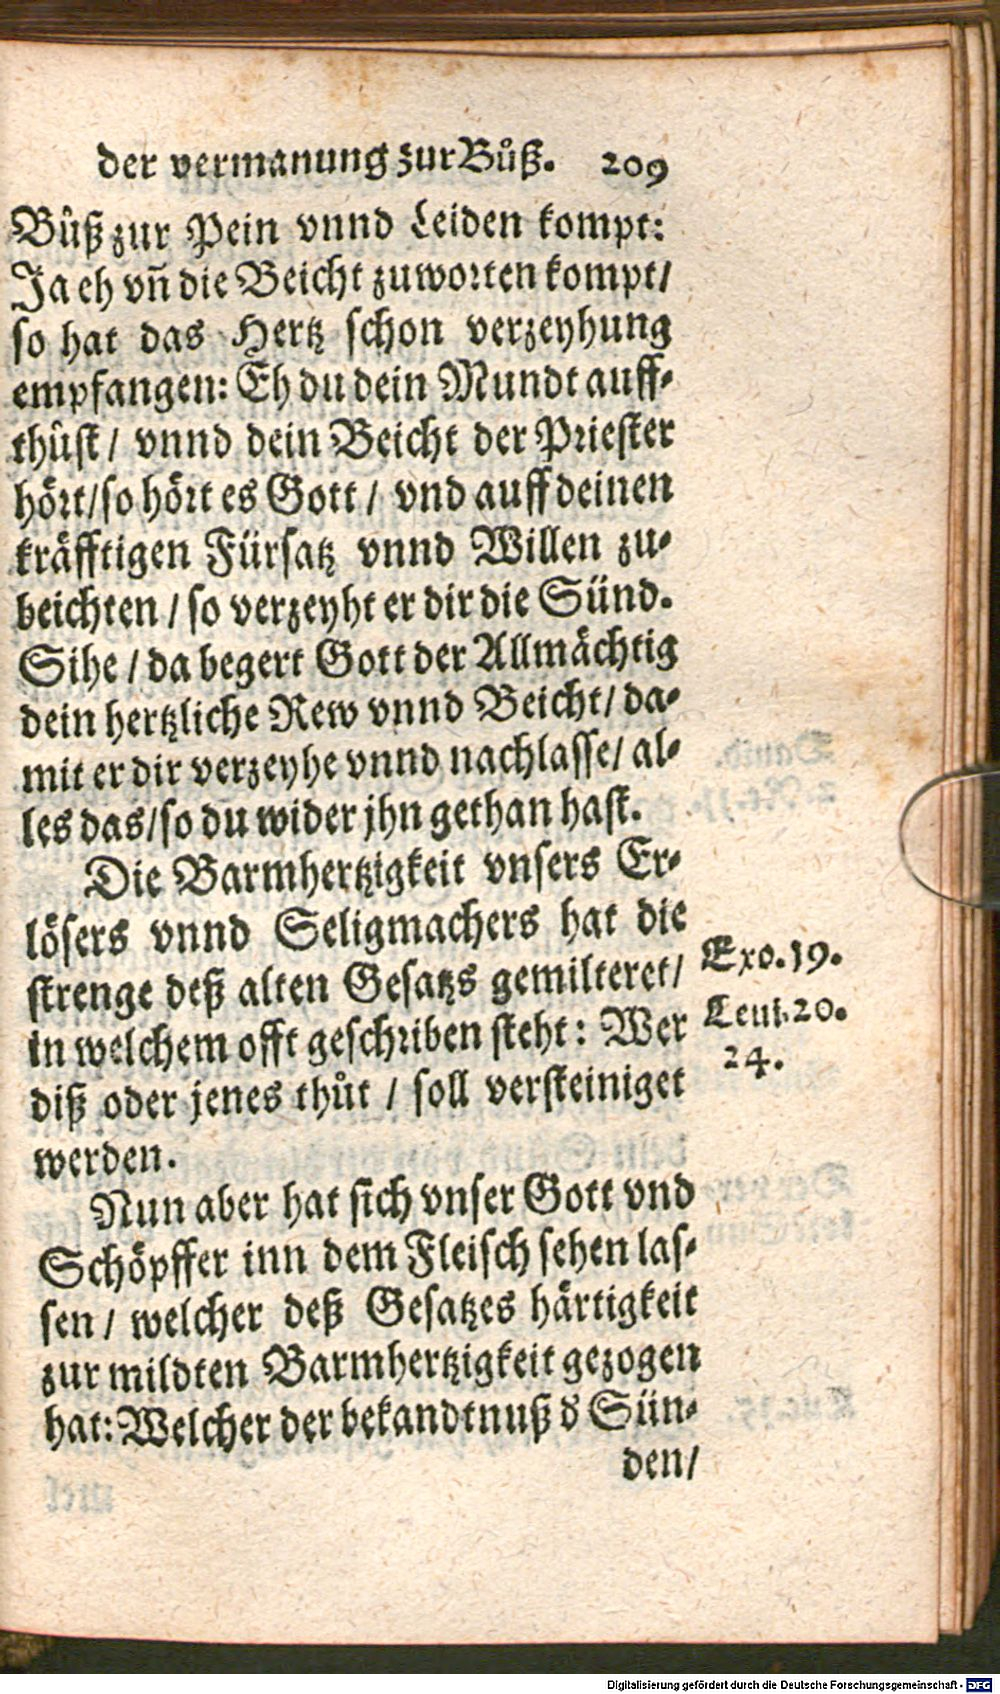 der vermanung zur Bůß. 209
Bůß zur Pein vnnd Leiden kompt:
Ja eh vñ die Beicht zuworten kompt/
so hat das Hertz schon verzeyhung
empfangen: Eh du dein Mundt auff-
thůst / vnnd dein Beicht der Priester
hört/so hört es Gott / vnd auff deinen
kräfftigen Fürsatz vnnd Willen zu-
beichten / so verzeyht er dir die Sünd.
Sihe / da begert Gott der Allmächtig
dein hertzliche Rew vnnd Beicht/ da-
mit er dir verzeyhe vnnd nachlasse/ al-
les das/so du wider jhn gethan hast.
Die Barmhertzigkeit vnsers Er-
lösers vnnd Seligmachers hat die
strenge deß alten Gesatzs gemilteret/
in welchem offt geschriben steht: Wer
diß oder jenes thůt / soll versteiniget
werden.
Exo.19.
Leui.20.
24.
Nun aber hat sich vnser Gott vnd
Schöpffer inn dem Fleisch sehen las-
sen / welcher deß Gesatzes härtigkeit
zur mildten Barmhertzigkeit gezogen
hat: Welcher der bekandtnuß d̕ Sün-
den/
Digitalisierung gefördert durch die Deutsche Forschungsgemeinschaft - DFG